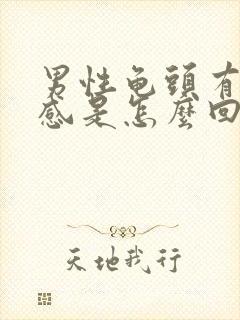 男性龟頭有
感是怎麼回
天地我行